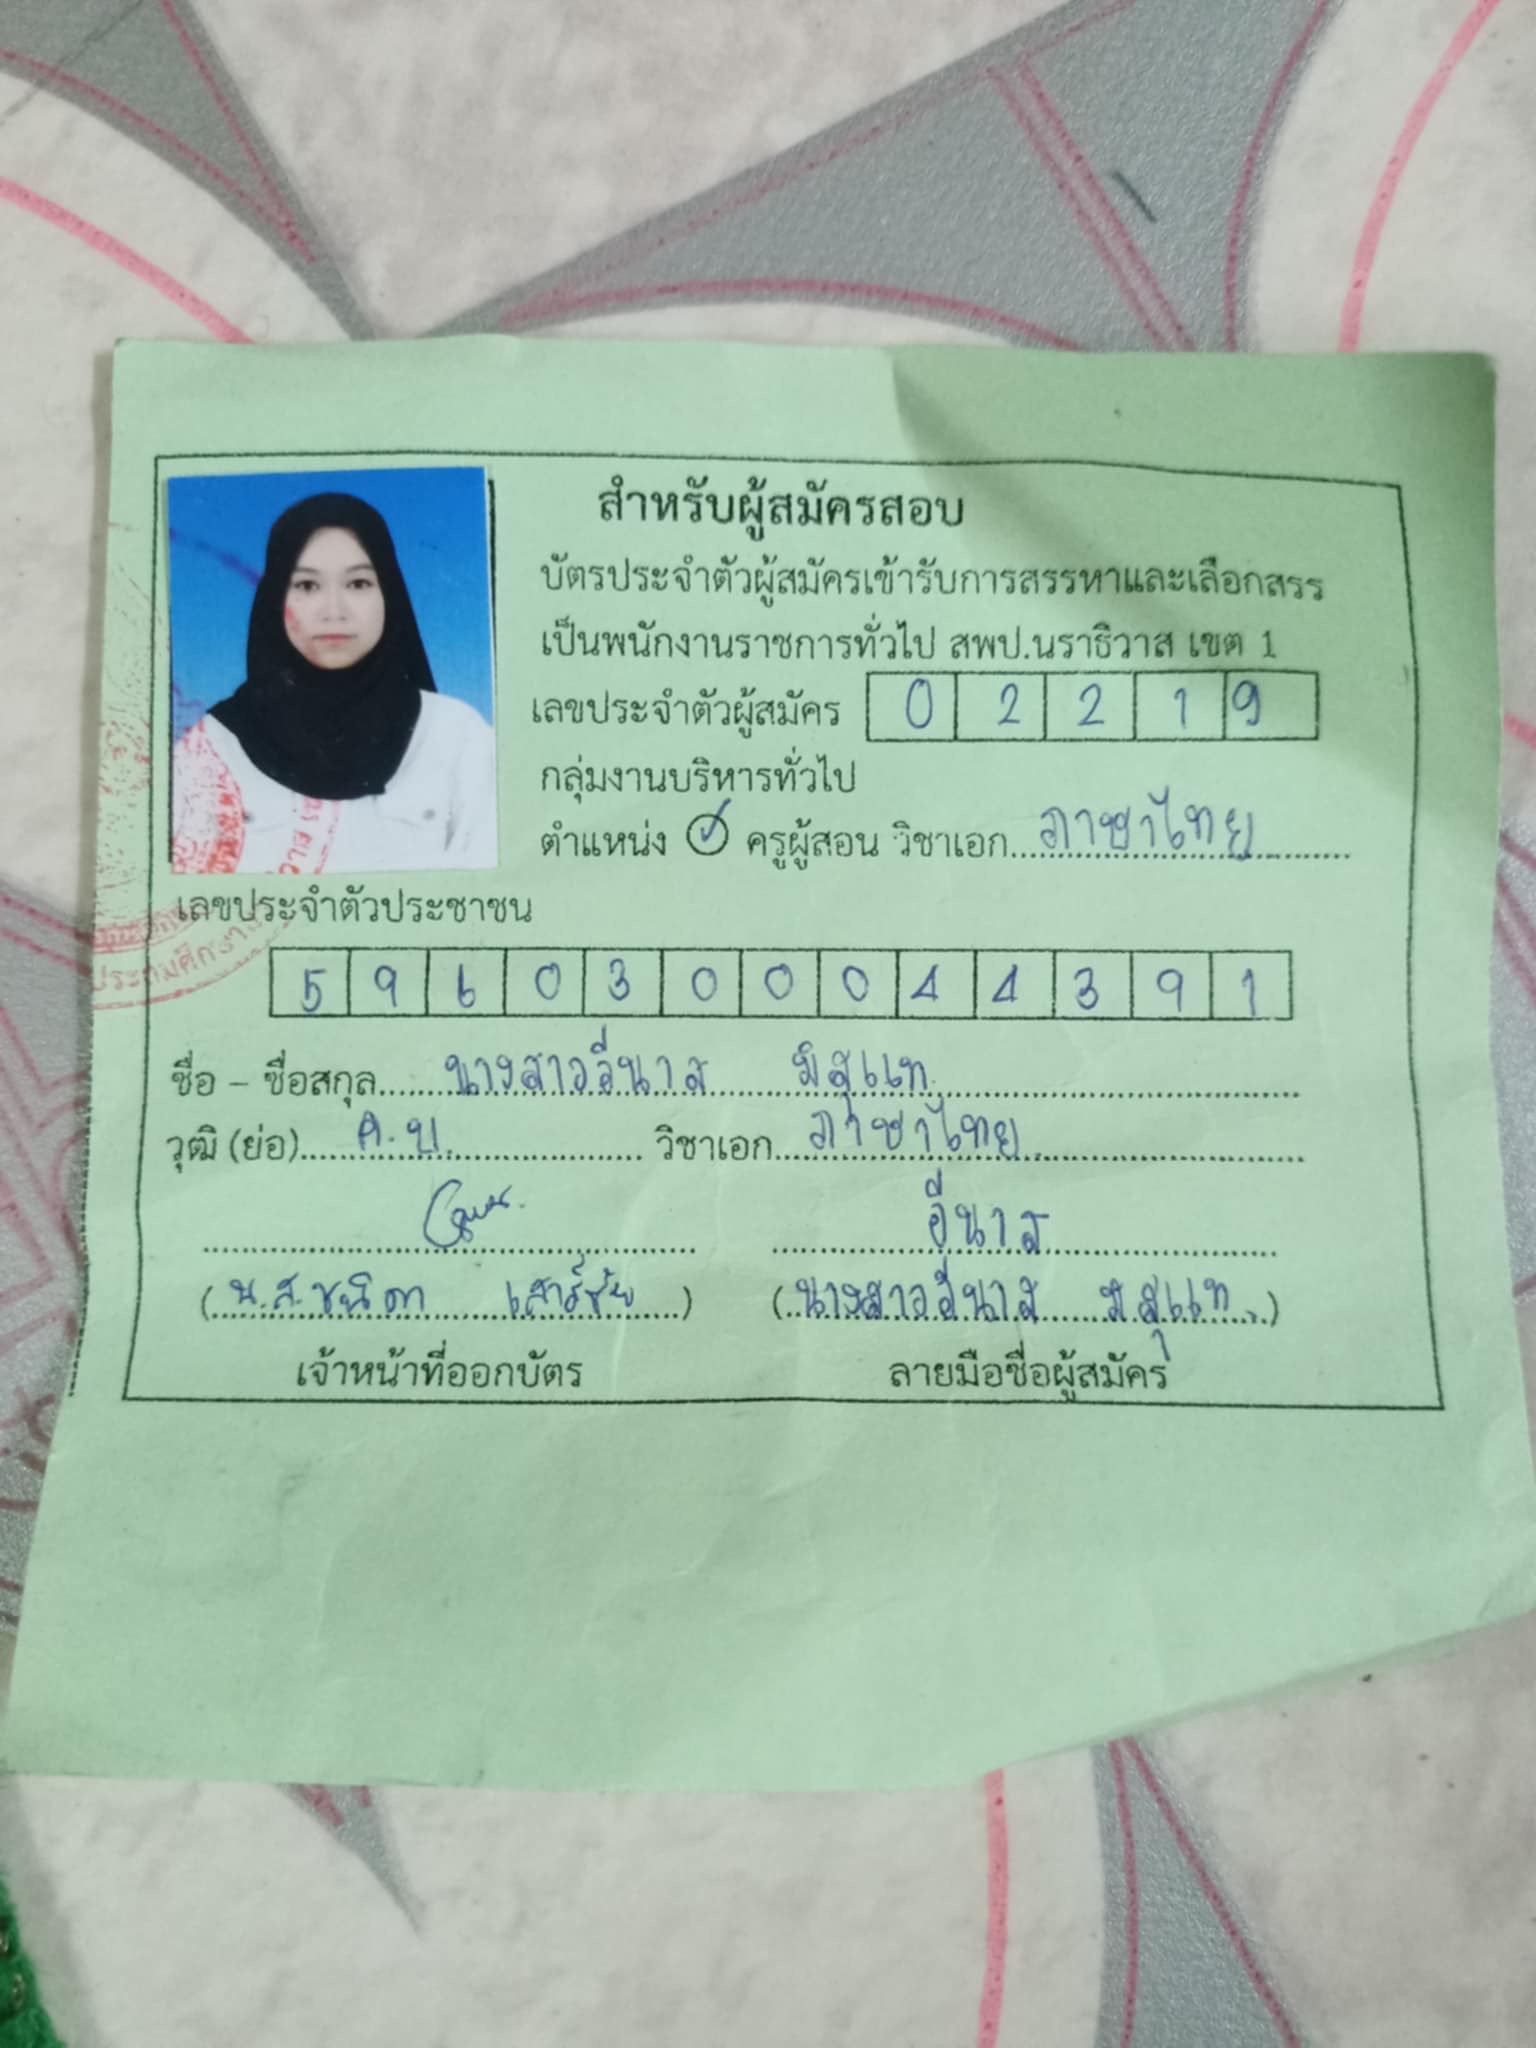 สำหรับผู้สมัครสอบ
บัตรประจำตัวผู้สมัครเข้ารับการสรรหาและเลือกสรร
เป็นพนักงานราชการทั่วไป สพป.นราธิวาส เขต 1
เลขประจำตัวผู้สมัคร 0 2 2 1 9
กลุ่มงานบริหารทั่วไป
ตำแหน่ง ครูผู้สอน วิชาเอก ภาษาไทย
เลขประจำตัวประชาชน
5 9 6 0 3 0 0 0 4 4 3 9 1
ชื่อ - ชื่อสกุล นางสาวอีนาส มิสุแท
วุฒิ (ย่อ) ค.บ. วิชาเอก ภาษาไทย
อีนาส
(น.ส.ชนิดา) (นางสาวอีนาส มิสุแท)
เจ้าหน้าที่ออกบัตร ลายมือชื่อผู้สมัคร